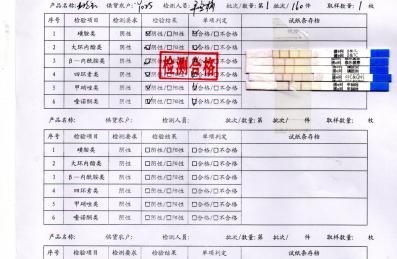 产品名称: 供货农户: 检测人员: 批次/数量: 第 1 批次/ 160 件 取样数量: 1 枚
序号 检验项目 检测要求 检验结果 单项判定 试纸条存档
1 磺胺类 阴性 ☑阴性/□阳性 ☑合格/□不合格
2 大环内酯类 阴性 ☑阴性/□阳性 ☑合格/□不合格
3 β—内酰胺类 阴性 ☑阴性/□阳性 ☑合格/□不合格
4 四环素类 阴性 ☑阴性/□阳性 ☑合格/□不合格
5 甲硝唑类 阴性 ☑阴性/□阳性 ☑合格/□不合格
6 喹诺酮类 阴性 ☑阴性/□阳性 ☑合格/□不合格
检测合格
产品名称: 供货农户: 检测人员: 批次/数量: 第 批次/ 件 取样数量: 枚
序号 检验项目 检测要求 检验结果 单项判定 试纸条存档
1 磺胺类 阴性 □阴性/□阳性 □合格/□不合格
2 大环内酯类 阴性 □阴性/□阳性 □合格/□不合格
3 β—内酰胺类 阴性 □阴性/□阳性 □合格/□不合格
4 四环素类 阴性 □阴性/□阳性 □合格/□不合格
5 甲硝唑类 阴性 □阴性/□阳性 □合格/□不合格
6 喹诺酮类 阴性 □阴性/□阳性 □合格/□不合格
产品名称: 供货农户: 检测人员: 批次/数量: 第 批次/ 件 取样数量: 枚
序号 检验项目 检测要求 检验结果 单项判定 试纸条存档